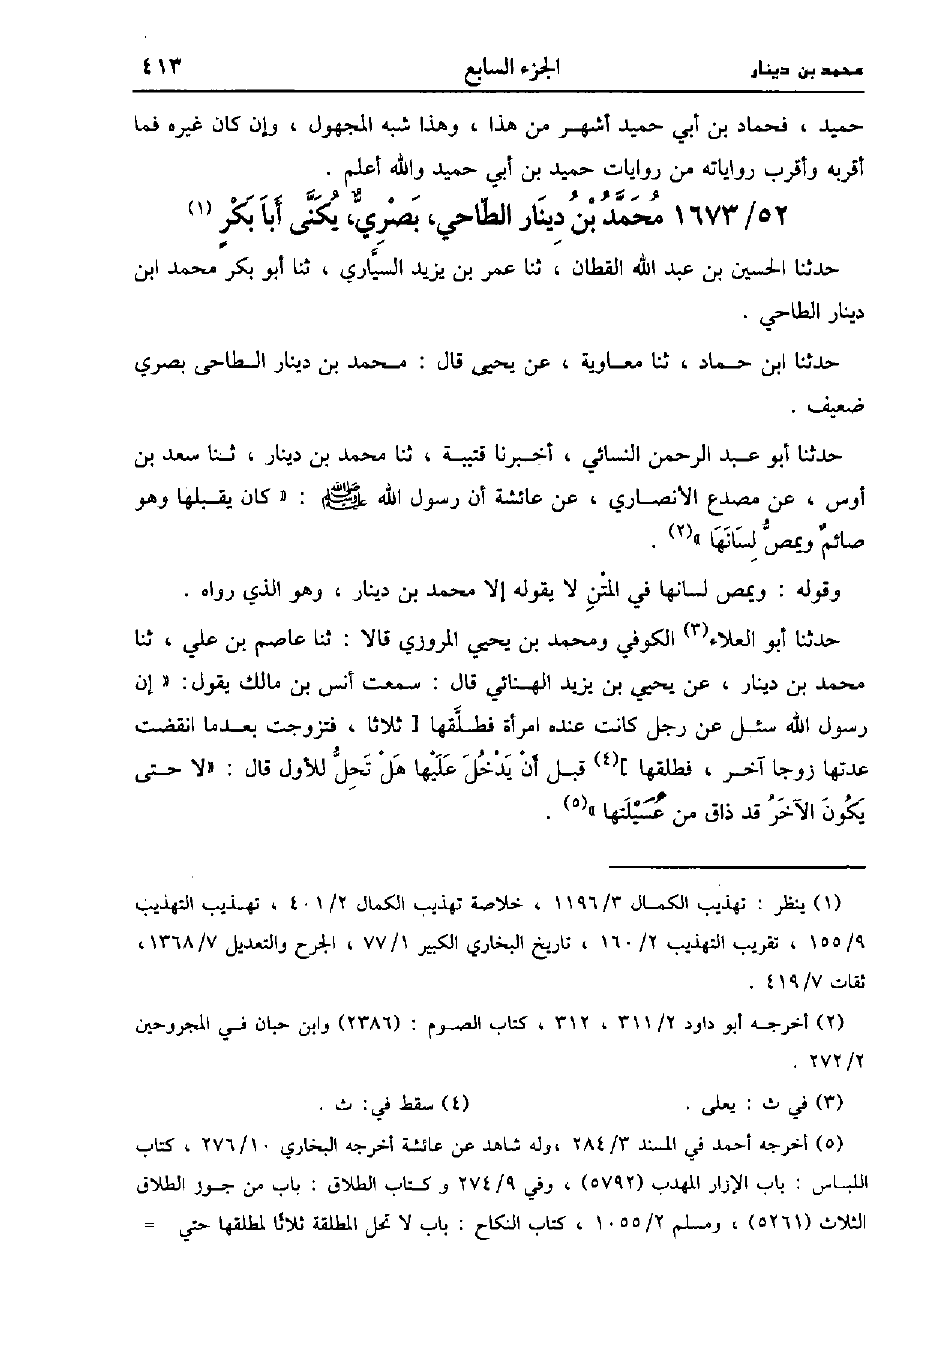 محمد بن دينار الجزء السابع ٤١٣
حميد ، فحماد بن أبي حميد أشهر من هذا ، وهذا شبه المجهول ، وإن كان غيره فما
أقربه وأقرب رواياته من روايات حميد بن أبي حميد والله أعلم .
١٦٧٣/٥٢ مُحَمَّدُ بْنُ دِينَار الطّاحي، بَصْرِيٌّ، يُكَنَّى أَبَا بَكْرٍ (١)
حدثنا الحسين بن عبد الله القطان ، ثنا عمر بن يزيد السيَّاري ، ثنا أبو بكر محمد ابن
دينار الطاحي .
حدثنا ابن حماد ، ثنا معاوية ، عن يحيى قال : محمد بن دينار الطاحى بصري
ضعيف .
حدثنا أبو عبد الرحمن النسائي ، أخبرنا قتيبة ، ثنا محمد بن دينار ، ثنا سعد بن
أوس ، عن مصدع الأنصاري ، عن عائشة أن رسول الله ﷺ : « كان يقبلها وهو
صائمٌ ويمصُّ لِسَانَهَا »(٢) .
وقوله : ويمص لسانها في المتْنِ لا يقوله إلا محمد بن دينار ، وهو الذي رواه .
حدثنا أبو العلاء(٣) الكوفي ومحمد بن يحيي المروزي قالا : ثنا عاصم بن علي ، ثنا
محمد بن دينار ، عن يحيي بن يزيد الهنائي قال : سمعت أنس بن مالك يقول: « إن
رسول الله سئل عن رجل كانت عنده امرأة فطلَّقها [ ثلاثا ، فتزوجت بعدما انقضت
عدتها زوجا آخر ، فطلقها ](٤) قبل أنْ يَدْخُلَ عَلَيْها هَلْ تَحِلُّ للأول قال : «لا حتى
يَكُونَ الآخَرُ قد ذاق من عُسَيْلَتها »(٥) .
(١) ينظر : تهذيب الكمال ١١٩٦/٣ ، خلاصة تهذيب الكمال ٤٠١/٢ ، تهذيب التهذيب
١٥٥/٩ ، تقريب التهذيب ١٦٠/٢ ، تاريخ البخاري الكبير ٧٧/١ ، الجرح والتعديل ١٣٦٨/٧ ،
ثقات ٤١٩/٧ .
(٢) أخرجه أبو داود ٣١١/٢ ، ٣١٢ ، كتاب الصوم : (٢٣٨٦) وابن حبان في المجروحين
٢٧٢/٢ .
(٣) في ث : يعلى . (٤) سقط في: ث .
(٥) أخرجه أحمد في المسند ٢٨٤/٣ ،وله شاهد عن عائشة أخرجه البخاري ٢٧٦/١٠ ، كتاب
اللباس : باب الإزار المهدب (٥٧٩٢) ، وفي ٢٧٤/٩ و كتاب الطلاق : باب من جوز الطلاق
الثلاث (٥٢٦١) ، ومسلم ١٠٥٥/٢ ، كتاب النكاح : باب لا تحل المطلقة ثلاثًا لمطلقها حتي =